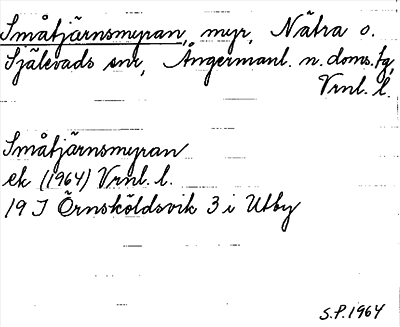 Småtjärnsmyran, myr, Nätra o.
Själevads snr, Ångermanl. n. doms.fg,
Vrnl. l.
Småtjärnsmyran
ek (1964) Vrnl. l.
19 I Örnsköldsvik 3 i Utby
S.P. 1964